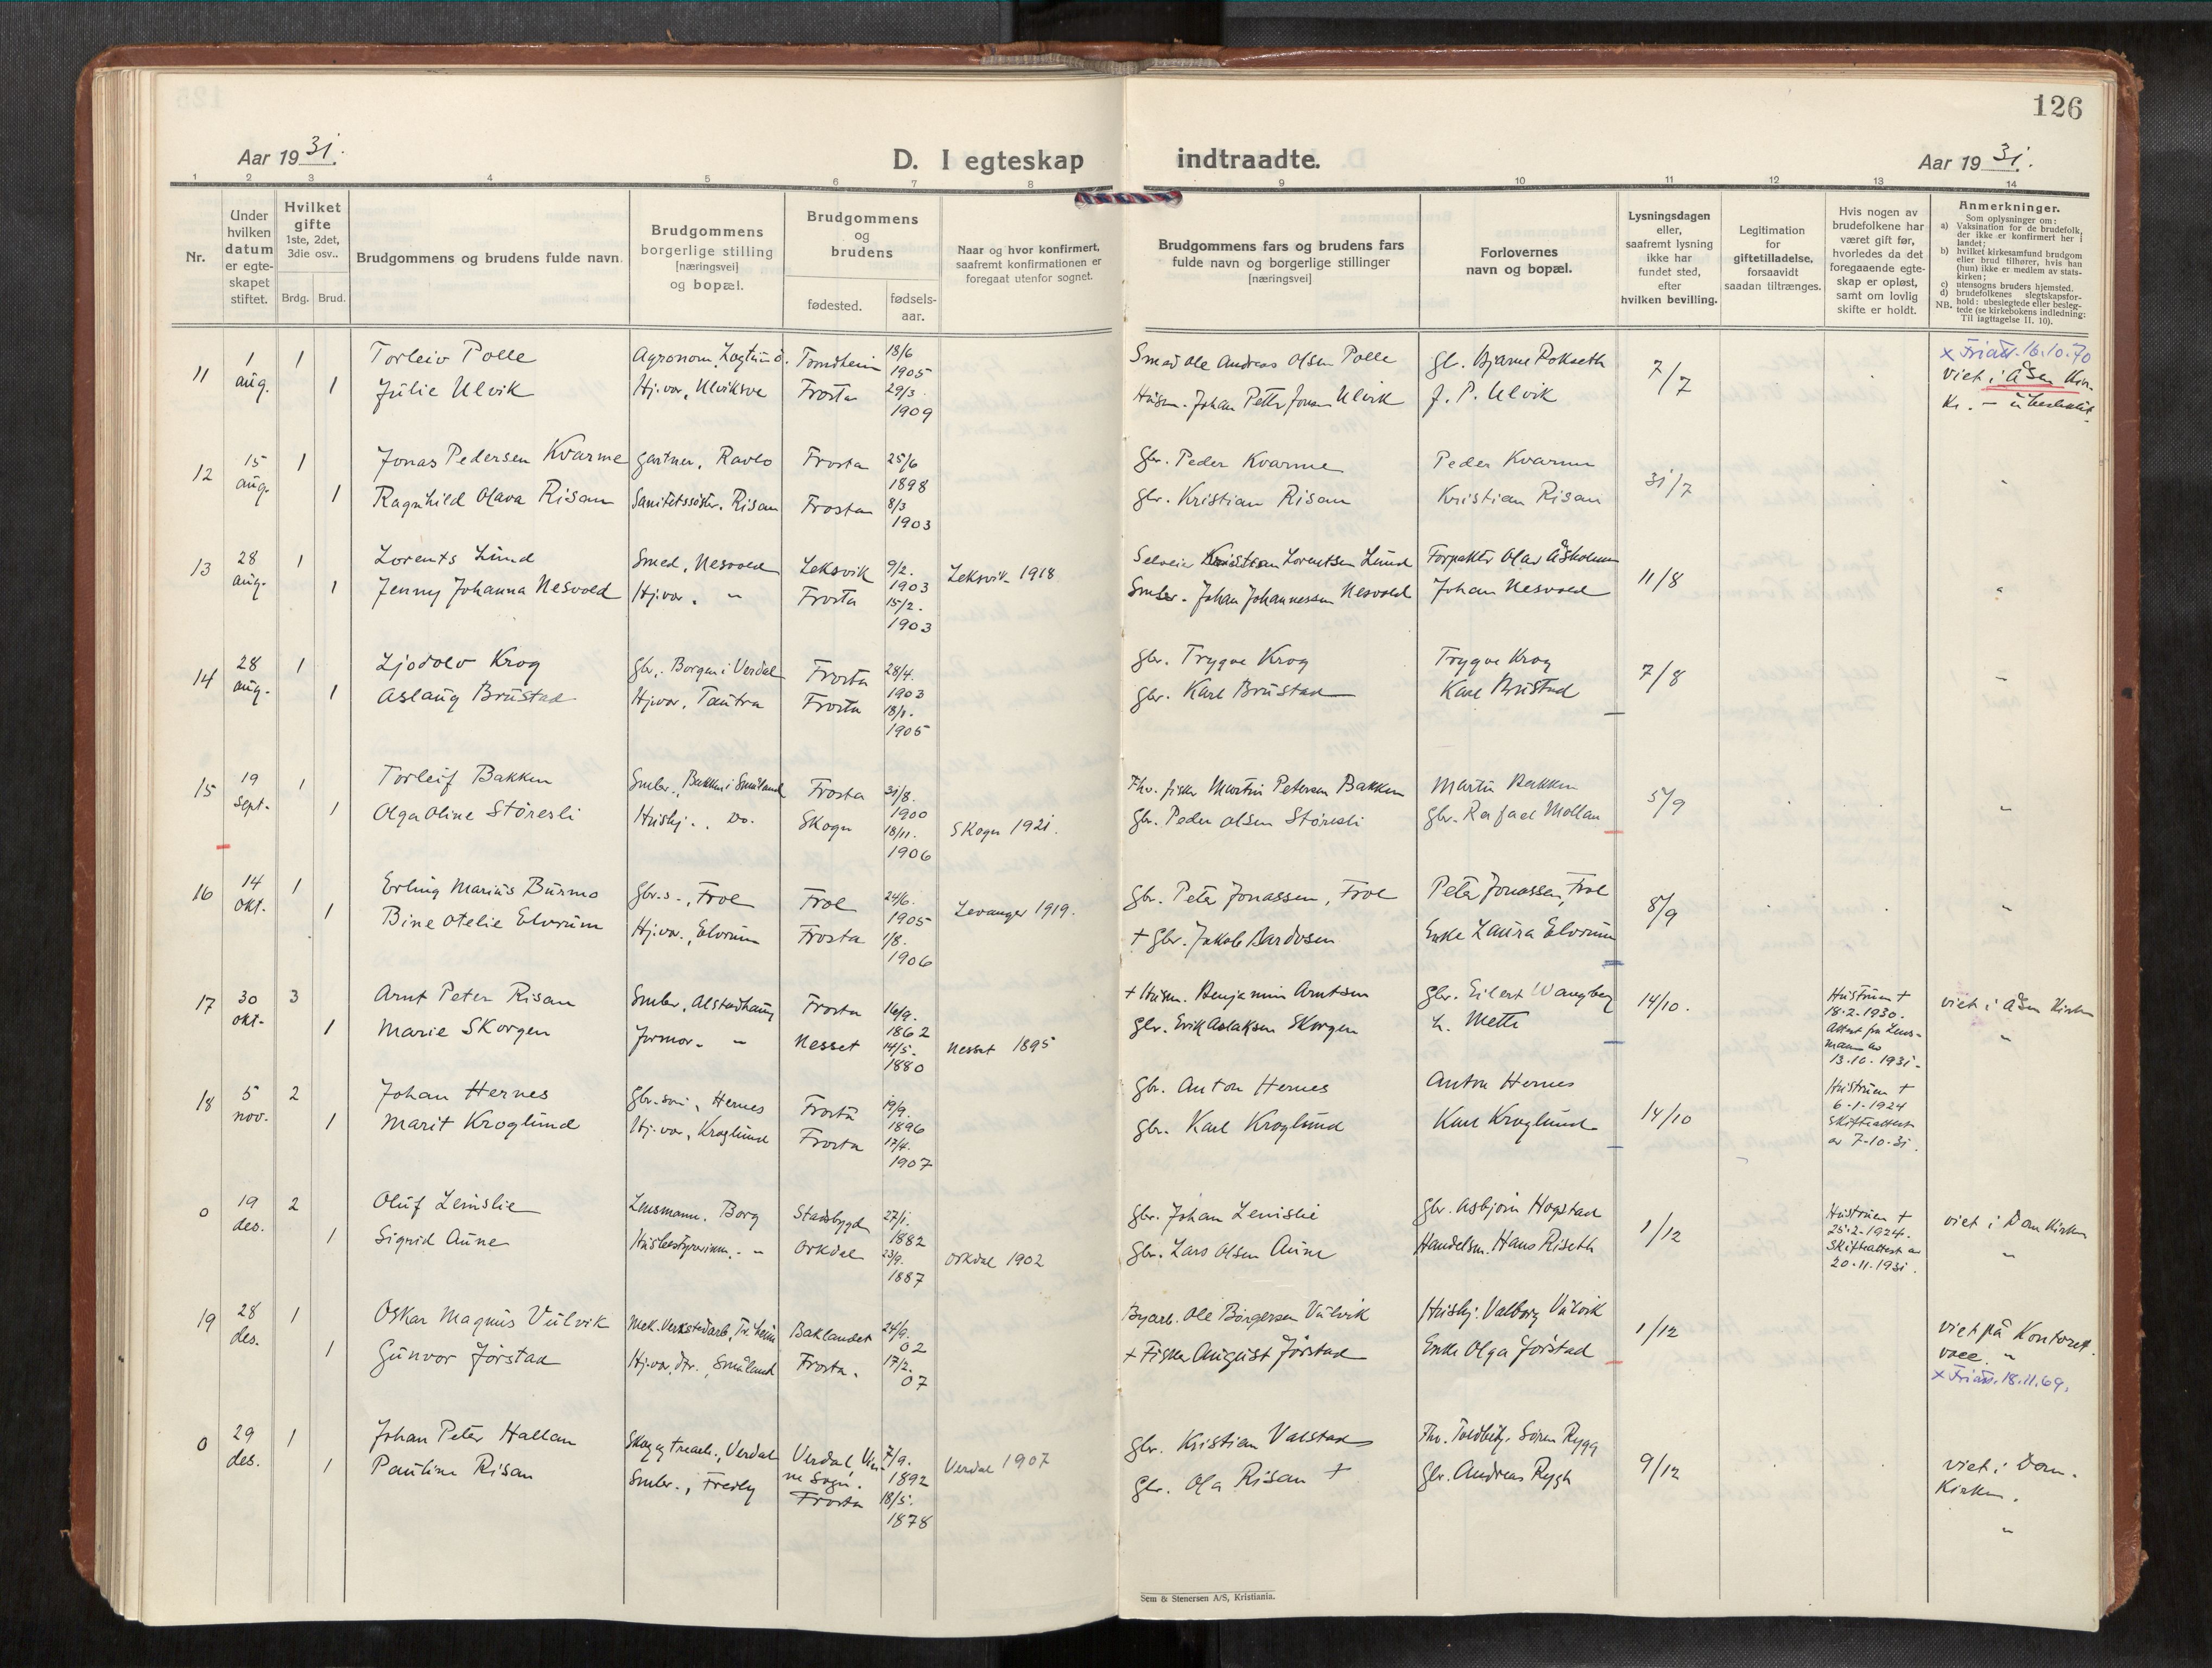 126
Aar 1931.
D. I egteskap
indtraadte.
Aar 1931.
1 2 3 4 5 6 7 8 9 10 11 12 13 14
Nr.
Under hvilken datum er egteskapet stiftet.
Hvilket gifte 1ste, 2det, 3die osv..
Brdg. Brud.
Brudgommens og brudens fulde navn.
Brudgommens borgerlige stilling [næringsvei] og bopæl.
Brudgommens og brudens
fødested.
fødsels-aar.
Naar og hvor konfirmert, saafremt konfirmationen er foregaat utenfor sognet.
Brudgommens fars og brudens fars fulde navn og borgerlige stillinger [næringsvei]
Forlovernes navn og bopæl.
Lysningsdagen eller, saafremt lysning ikke har fundet sted, efter hvilken bevilling.
Legitimation for giftetilladelse, forsaavidt saadan tiltrænges.
Hvis nogen av brudefolkene har været gift før, hvorledes da det foregaaende egteskap er opløst, samt om lovlig skifte er holdt.
Anmerkninger.
Som oplysninger om:
a) Vaksination for de brudefolk, der ikke er konfirmert her i landet;
b) hvilket kirkesamfund brudgom eller brud tilhører, hvis han (hun) ikke er medlem av statskirken;
c) utensogns bruders hjemsted.
d) brudefolkenes slegtskapsforhold: ubeslegtede eller beslegtede (se kirkebokens indledning:
NB. Til iagttagelse II. 10).
11 1 aug. 1 Torleiv Polle Agronom, Trondheim 18/6 1905 Smed Ole Andreas Olsen Polle Gb. Bjarne 7/7 x Friatt. 16.10.70
1 Julie Ulvik Hj.vor, Frosta 29/3 1909 Husm. Johan Petter Ulvik J. P. Ulvik viet i Åsen
12 15 aug. 1 Jonas Pedersen Kvarme gartner, Ravlo Frosta 25/6 1898 Gbr. Peder Kvarme Peder Kvarme 31/7
1 Ragnhild Olava Risan Risan Frosta 8/3 1903 Gbr. Kristian Risan Kristian Risan
13 28 aug. 1 Lorents Lund Smed, Nesvold Leksvik 9/2. 1903 Leksvik 1918 Selveier Kristian Lorentsen Lund Forpakter Olav Åsholmen 11/8
1 Jenny Johanna Nesvold Hj.vor. " Frosta 15/2. 1903 Smbr. Johan Johannessen Nesvold Johan Nesvold
14 28 aug. 1 Ljodolv Krog Gbr., Borgen i Verdal Frosta 28/4. 1903 Gbr. Trygve Krog Trygve Krog 7/8
1 Aslaug Brustad Hj.vor, Tautra Frosta 1905 Gbr. Karl Brustad Karl Brustad
15 19 sept. 1 Torleif Bakken Smbr., Bakken i Småland Frosta 31/8. 1900 Fhv. fisker Martin Petersen Bakken Martin Bakken 5/9
1 Olga Oline Störesli Hushj., Do. Skogn 18/11. 1906 Skogn 1921. Gbr. Peder Olsen Störesli Gbr. Rafael Mollan
16 14 okt. 1 Erling Marius Busmo Gbr.s., Frol Frol 24/6. 1905 Levanger 1919. Gbr. Peter Jonassen, Frol Peter Jonassen, Frol 8/9
1 Bine Otelie Elvrum Hj.vor., Elvrum Frosta 1/8. 1906 + Gbr. Jakob Bardosen Enke Laura Elvrum
17 30 okt. 3 Arnt Peter Risan Smbr, Alstadhaug Frosta 16/9. 1862 + Husm. Benjamin Arntsen Gbr. Eilert Wangberg 14/10. Hustruen + 18.2.1930. Attest fra Lensmann av 13.10.1931. viet i Åsen Kirke
1 Marie Skorgen Jormor. " Nesset 14/5. 1880 Nesset 1895 Gbr. Erik Aslaksen Skorgen L. Mette
18 5 nov. 2 Johan Hernes Gbr.søn, Hernes Frosta 19/9. 1896 Gbr. Anton Hernes Anton Hernes 14/10 Hustruen + 6.1.1924 Skifteattest av 7-10-31.
1 Marit Kroglund Hj.vor, Kroglund Frosta 17/4. 1907 Gbr. Karl Kroglund Karl Kroglund
0 19 des. 2 Oluf Leinslie Lensmann. Borg Stadsbygd 27/1. 1882 Gbr. Johan Leinslie Gbr. Asbjörn Hogstad 1/12 Hustruen + 25.2.1924. Skifteattest av 20.11.1931. viet i Domkirken
1 Sigrid Aune Husbestyrerinne. " Orkdal 23/9. 1887 Orkdal 1902 Gbr. Lars Olsen Aune Handelsm. Hans Riseth
19 28 des. 1 Oskar Magnus Vulvik Mek. Verkstedarb, Baklandet 24/9. 02 Byarb. Ole Börgersen Vulvik Hushj. Valborg Vulvik 1/12 viet på Kontoret.
1 Gunvor Jörstad Hj.vor, Småland Frosta. 17/2. 07 + Fisker August Jörstad Enke Olga Jörstad x Friatt. 18.11.69.
0 29 des. 1 Johan Peter Hallan Verdal Verdal 7/9. 1892 Verdal 1907 Gbr. Kristian Valstad Fhv. Toldbetj. Sören Rygg 9/12 viet i Domkirken.
1 Pauline Risan Smbr., Frosta 18/5. 1878 Gbr. Ola Risan + Gbr. Andreas Rygh
Sem & Stenersen A/S, Kristiania.